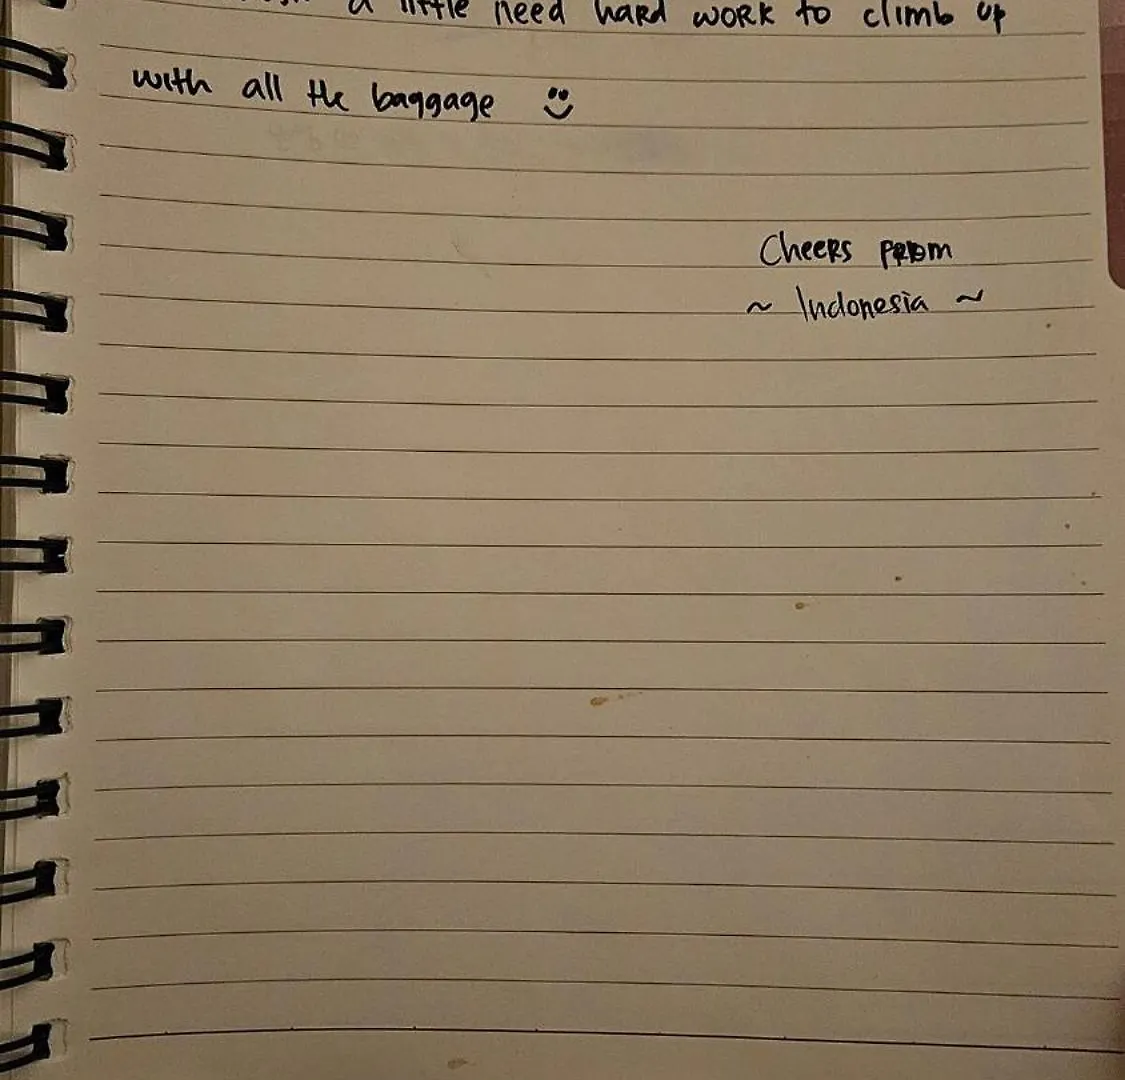 a little need hard work to climb up
with all the baggage
Cheers from
~ Indonesia ~